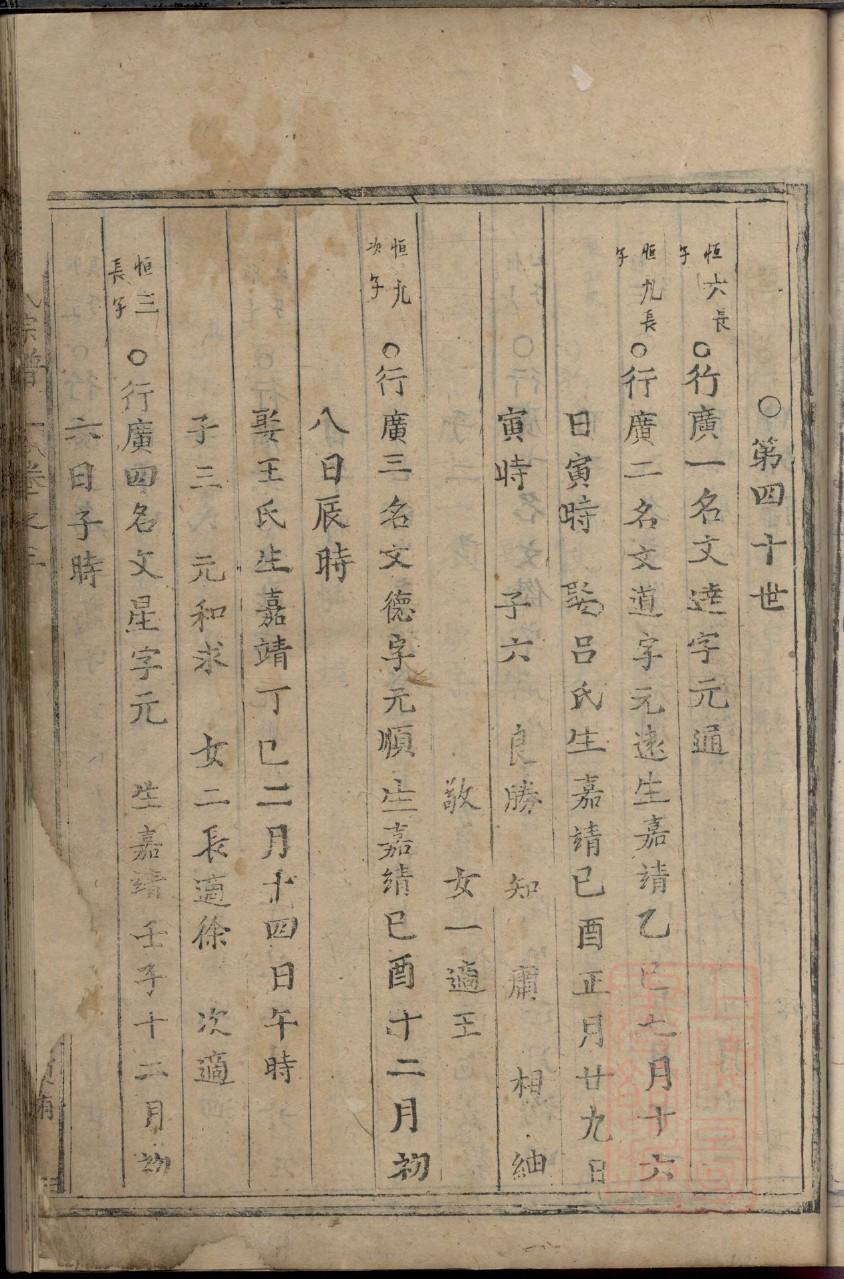 ○第四十世
恒六長子○行廣一名文達字元通
恒九長子○行廣二名文道字元遠生嘉靖乙巳七月十六
日寅時 娶呂氏生嘉靖己酉正月廿九日
寅時 子六 良勝 知 庸 相 紳
敬 女一適王
恒九次子○行廣三名文德字元順生嘉靖己酉十二月初
八日辰時
娶王氏生嘉靖丁巳二月十四日午時
子三 元和求 女二長適徐 次適
恒三長子○行廣四名文星字元 生嘉靖壬子十二月初
六日子時
宗譜 卷之